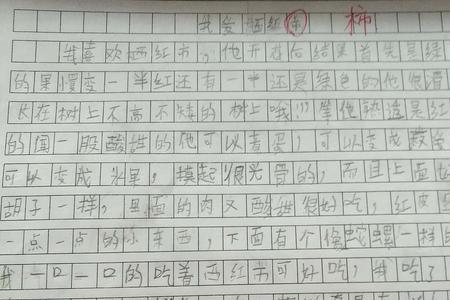 我爱西红市 柿
我喜欢西红市，他开花后结果首先是绿
的果慢变一半红还有一半还是绿色的他很
长在树上不高不矮的树上哦!!!等他熟透是红
的闻一股酸甜的他可以煮蛋，可以变成
可以变成水果，摸起很光骨的，而且上面
胡子一样，里面的肉又酸甜很好吃，红皮
一点一点的东西，下面有个像蛇螺一样的
我一口一口的吃着西红市可好吃，我吃了